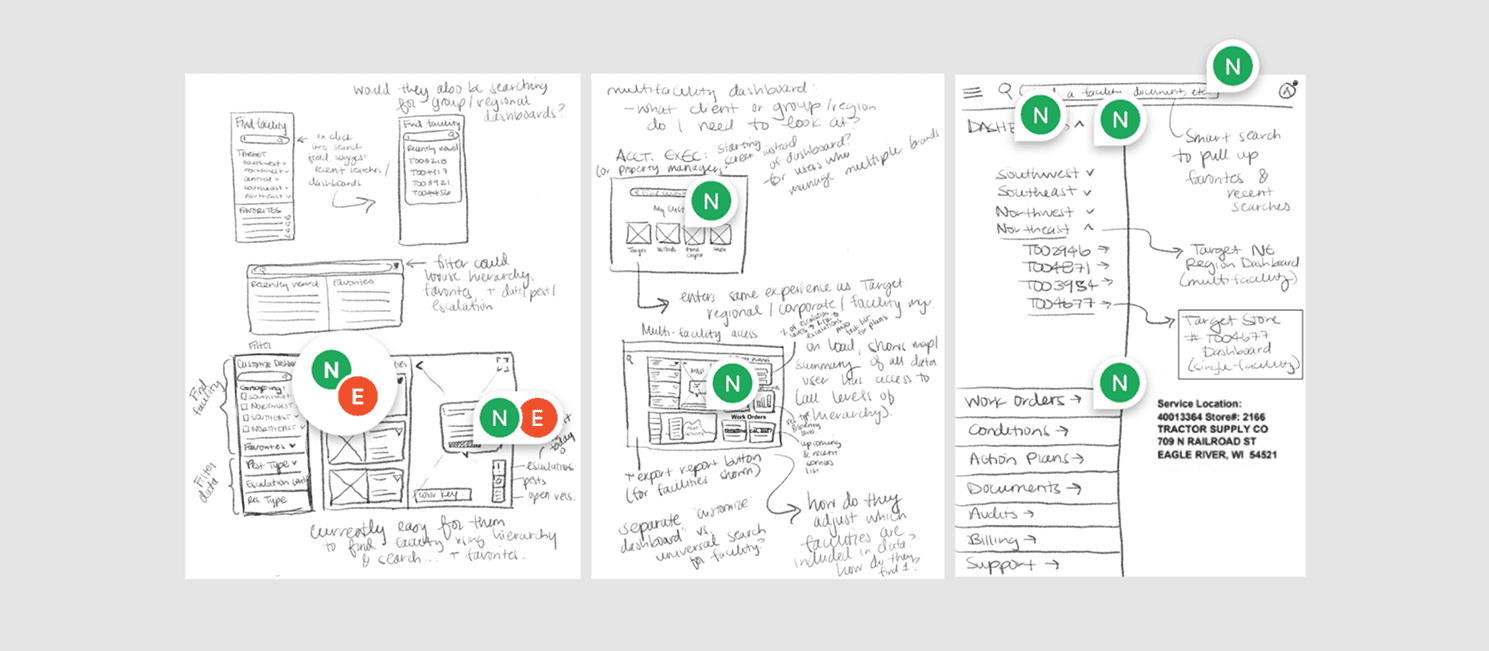 would they also be searching
for group/regional
dashboards?
Find facility
TARGET
southwest
northwest
central
southeast
northeast
FAVORITES
in click
into search
feed, suggest
recent searches/
dashboards
Find facility
Recently viewed
T003218
T004917
T003921
T004456
Recently viewed
Favorites
filter could
house hierarchy,
favorites, + date/pest/
escalation
Filter
Find
facility
Filter
data
Customize Dashbo
Grouping:
Southwest
Northwest
Southeast
Northeast
Favorites
Pest Type
Escalation
Rec Type
N
E
N
E
today
escalations
pests
open recs.
Color key
currently easy for them
to find facility using hierarchy
& search... + favorites.
multifacility dashboard:
- what client or group/region
do I need to look at?
ACCT. EXEC:
(or property manager)
starting
screen instead
of dashboard?
for users who
manage multiple brands
N
My Cust
Target
enters same experience as Target
regional/corporate/facility mgr.
Multi-facility access
on load, shows map/
summary of all data
user has access to
(all levels of
hierarchy).
MAP
N
Work Orders
upcoming
& recent
services
list
+ export report button
(for facilities shown)
separate "customize
dashboard" vs.
universal search
for facility?
how do they
adjust which
facilities are
included in data?
how do they
find 1?
N
N
N
a facility, document, etc.
DASHB
Southwest
Southeast
Northwest
Northeast
T002946
T004871
T003984
T004677
Smart search
to pull up
favorites &
recent
searches
Target NE
Region Dashboard
(multi-facility)
Target Store
# T004677
Dashboard
(single-facility)
N
Work Orders →
Conditions →
Action Plans →
Documents →
Audits →
Billing →
Support →
Service Location:
40013364 Store#: 2166
TRACTOR SUPPLY CO
709 N RAILROAD ST
EAGLE RIVER, WI 54521